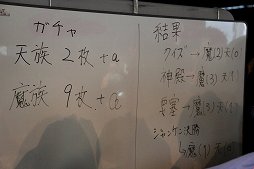 ガチャ
天族 2枚+α
魔族 9枚+α
結果
クイズ→魔(2)天(0)
神殿→魔(3)天1
要塞→魔(3)天(1)
ジャンケン決勝
↳魔(1)天(0)